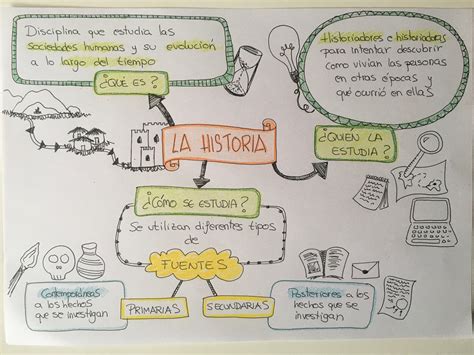 Disciplina que estudia las
sociedades humanas y su evolución
a lo largo del tiempo
¿QUÉ ES?
Historiadores e historiadoras
para intentar descubrir
como vivían las personas
en otras épocas y
qué ocurrió en ellas
¿QUIEN LA
ESTUDIA?
LA HISTORIA
¿CÓMO SE ESTUDIA?
Se utilizan diferentes tipos
de
FUENTES
PRIMARIAS
SECUNDARIAS
Contemporáneas
a los hechos
que se investigan
Posteriores a los
hechos que se
investigan